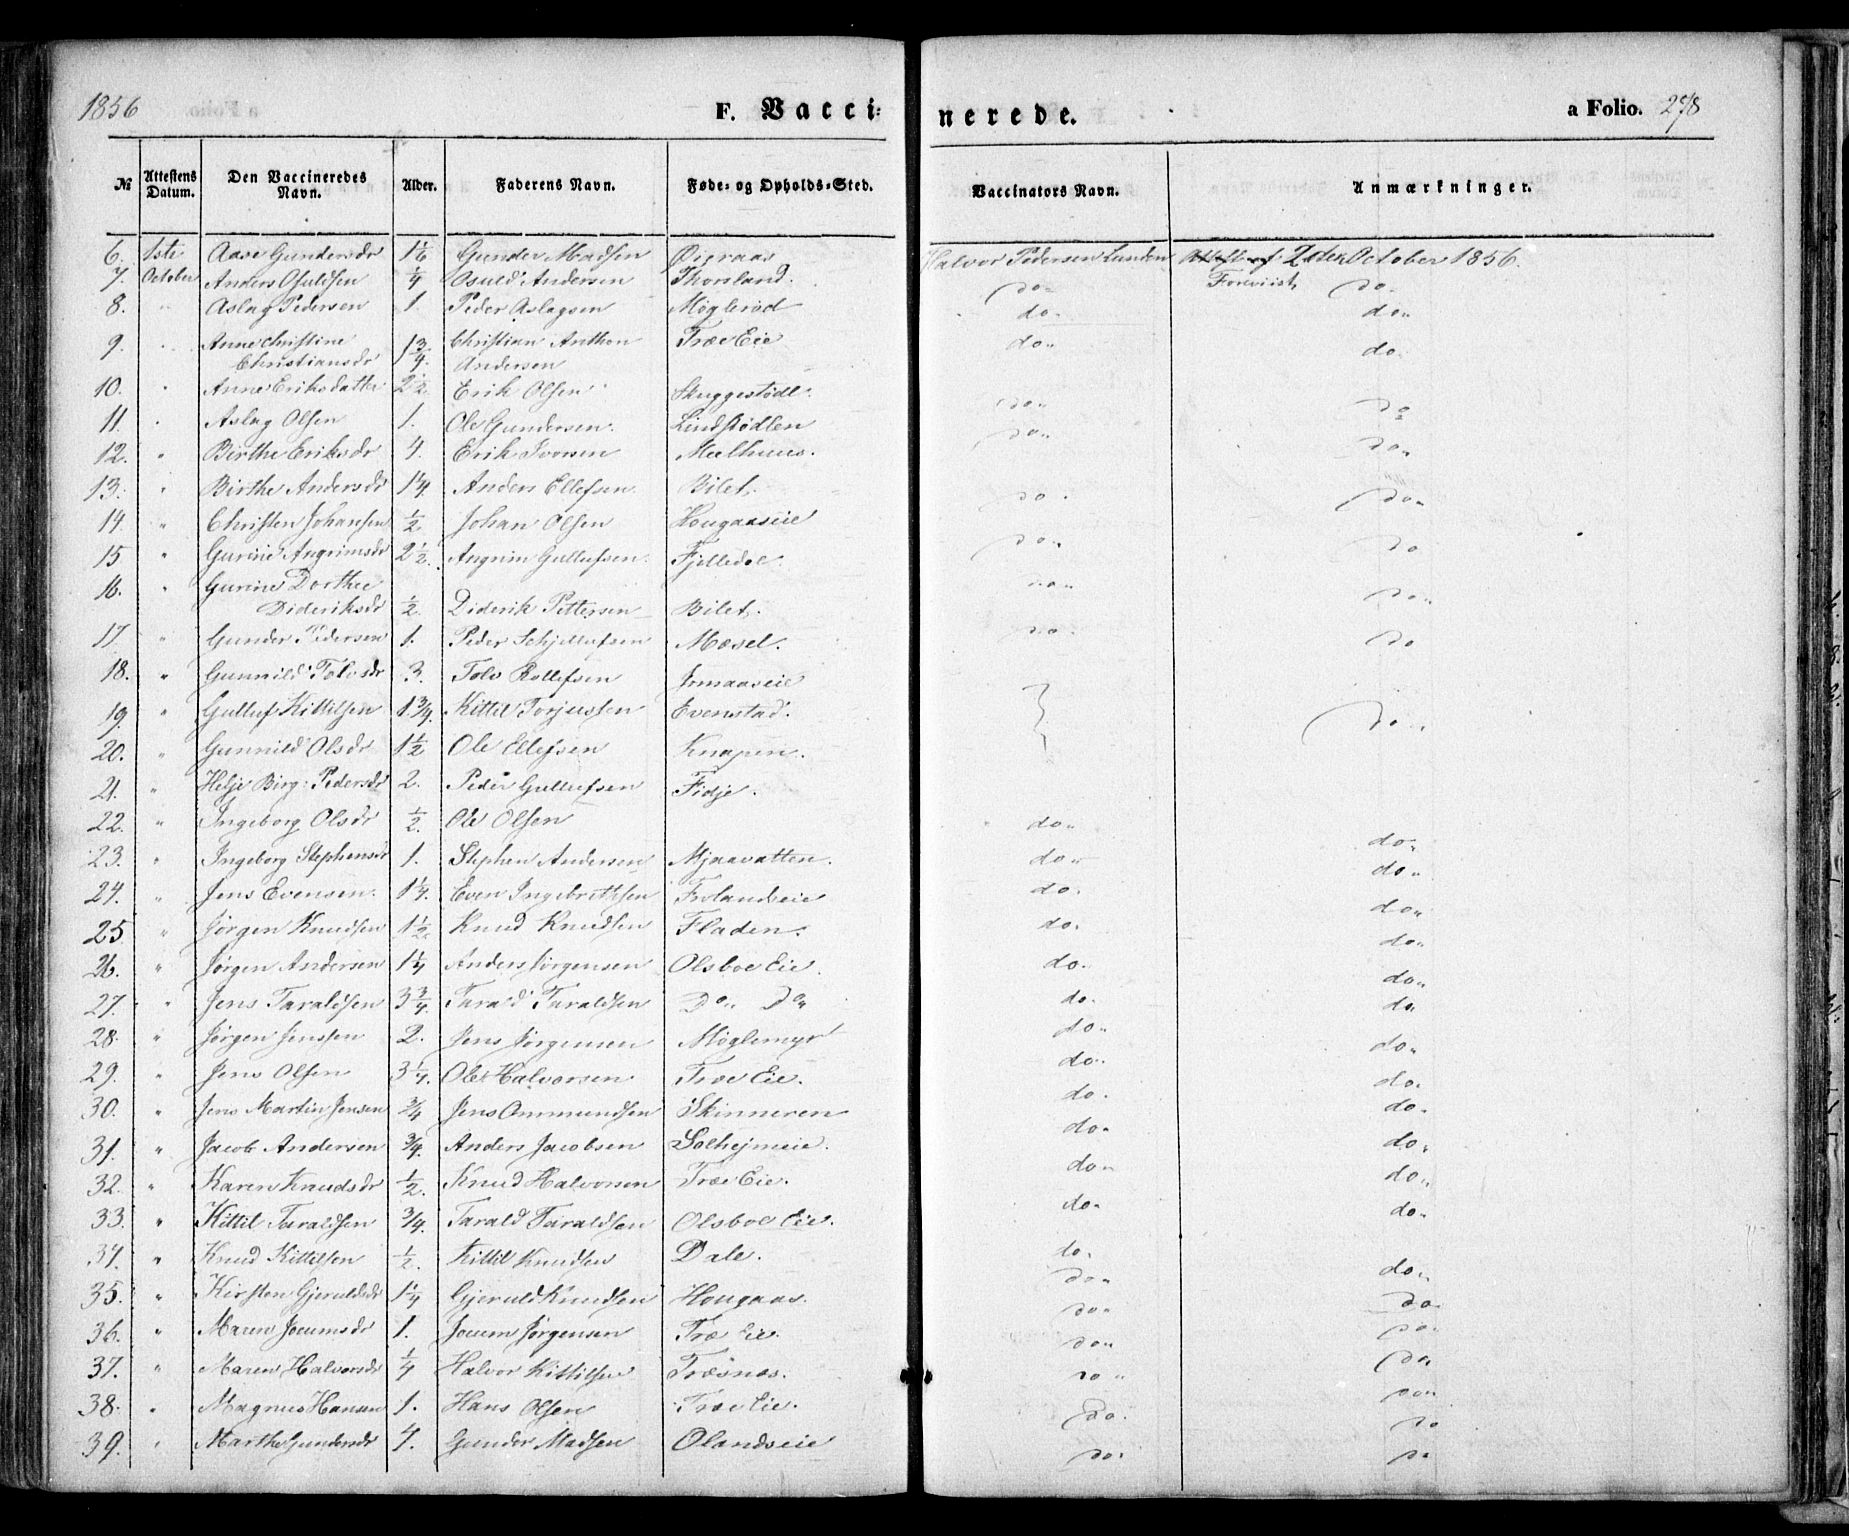 1856 F. Vaccinerede. a Folio. 278
№ Attestens Datum. Den Vaccineredes Navn. Alder. Faderens Navn. Føde- og Opholds-Sted. Vaccinators Navn. Anmærkninger.
6. 1ste Aase Gundersdr 1 1/6 Gunder Madsen Øigraas Halvor Pedersen Lunden 2den October 1856.
7. October Anders Osuldsen 1/4 Osuld Andersen Thorsland. do Foreviist do
8. " Aslag Pedersen 1. Peder Aslagsen Møglerød do. do"
9. " Anne Christine Christiansdr 1 3/4. Christian Anthon Andersen Træ Eie do" do.
10. " Anne Eriksdatter 2 1/2. Erik Olsen Skuggestødl. do" do
11. " Aslag Olsen 1. Ole Gundersen. Lindstødlen do" do"
12. " Birthe Eriksdr 4. Erik Iversen Mælhuus.
13. " Birthe Andersdr 1 1/4. Anders Ellefsen Bilet. do. do"
14. " Christen Johansen 1/2. Johan Olsen Hougaaseie
15 " Gurine Angrimsdr 2 1/2. Angrim Gullufsen. Fjelledal do" do
16. " Gurine Dorthe Dideriksdr 1/2. Diderik Pettersen Bilet. do" do"
17. " Gunder Pedersen 1. Peder Schjellufsen Mæsel. do. do
18. " Gunnild Tolvsdr 3. Tolv Rollefsen
19. " Gulluf Kittilsen 1 3/4. Kittil Torjussen Evenstad. do"
20. " Gunnild Olsdr 1 1/2 Ole Ellefsen Knapen.
21. " Helje Birg: Pedersdr 2. Peder Gullufsen Fidje.
22. " Ingeborg Olsdr 1/2. Ole Olsen do" do"
23. " Ingeborg Stephensdr 1. Stephen Andersen Mjaavatten. do" do"
24. " Jens Evensen. 1 1/4. Even Ingebrethsen Frolandseie do. do"
25 " Jørgen Knudsen 1 1/2. Knud Knudsen Fladen. do. do"
26. " Jørgen Andersen 1 1/4 Anders Jørgensen Olsboe Eie. do. do"
27. " Jens Taraldsen 3 3/4. Tarald Taraldsen Do" Do" do. do
28. " Jørgen Jenssen 2. Jens Jørgensen Møglemyr do" do"
29. " Jens Olsen 3 1/4. Ole Halvorsen Træ Eie. do. do.
30. " Jens Martin Jensen 3/4 Jens Ommundsen Skinneren do. do.
31. " Jacob Andersen 3/4. Anders Jacobsen Solhejmeie. do. do"
32. " Karen Knudsdr 1/2. Knud Halvorsen Træ Eie. do" do"
33. " Kittil Taraldsen 3/4. Tarald Taraldsen Olsboe Eie. do. do.
34. " Knud Kittilsen 1/2. Kittil Knudsen Dale. do. do"
35. " Kirsten Gjeruldsdr 1 1/4 Gjeruld Knudsen Hougaas. do" do.
36. " Maren Jocumsdr 1. Jocum Jørgensen Træ Eie. do" do"
37. " Maren Halvorsdr 1/4 Halvor Kittilsen Træsnes. do" do
38. " Magnus Hansen 1. Hans Olsen Træ Eie. do" do"
39. " Marthe Gundersdr 4. Gunder Madsen Olandseie do. do
do. do